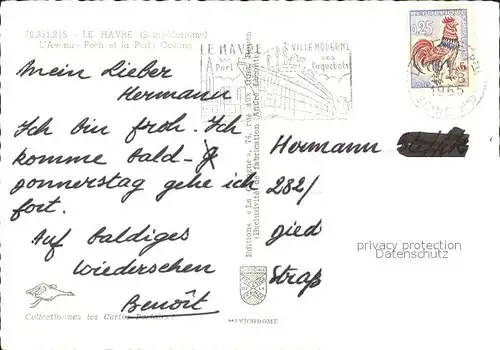 70.351.215 - LE HAVRE (Seine-Maritime)
L'Avenue Foch et la Porte Océane
LE HAVRE
son
Port
VILLE MODERNE
ses
Paquebots
0,25
1965
Mein Lieber
Hermann
Ich bin froh. Ich
komme bald
Donnerstag gehe ich
fort.
Auf baldiges
wiederschen
Benoît
Hermann
282/
gied
Straß
Editions « La Cigogne », 74, rue aux Ours, Rouen
(Exclusivité de fabrication
privacy protection
Datenschutz
Collectionnez les Cartes Postales
MEXICHROME